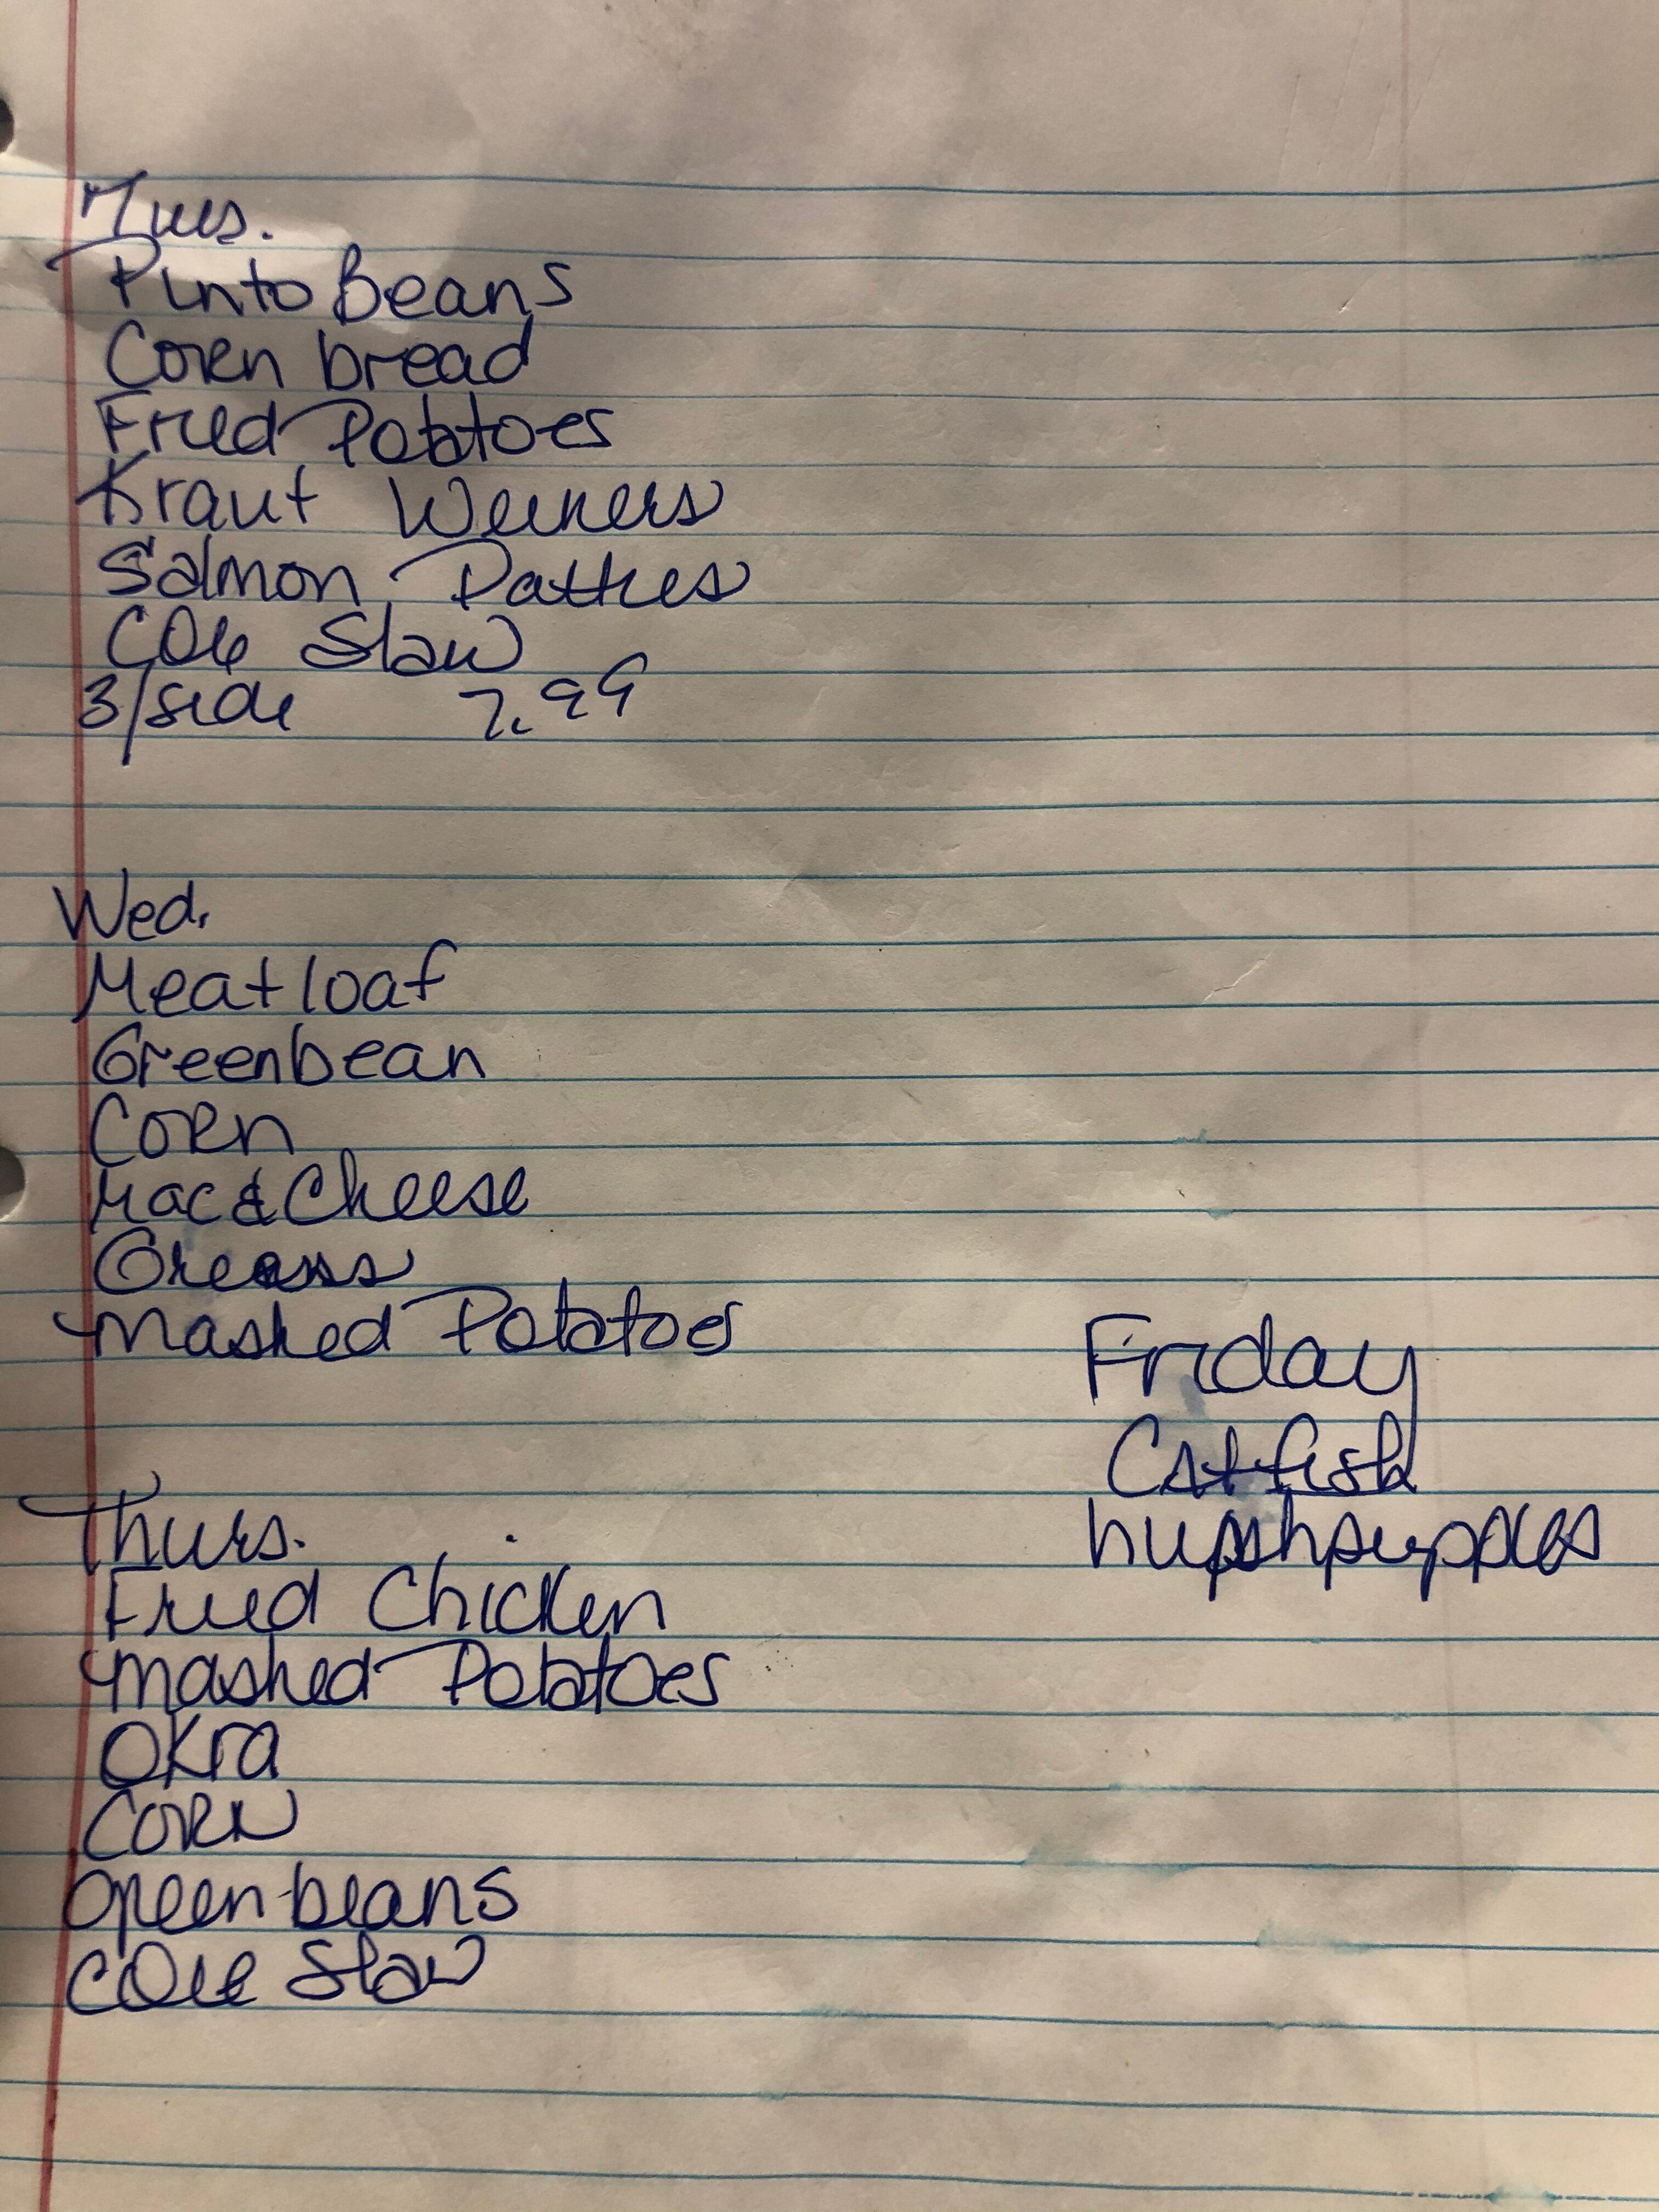 Tues.
Pinto Beans
Corn bread
Fried Potatoes
Kraut Weiners
Salmon Patties
Cole Slaw
3/side 7.99
Wed.
Meatloaf
Greenbean
Corn
Mac & Cheese
Greens
Mashed Potatoes
Thurs.
Fried Chicken
Mashed Potatoes
Okra
Corn
Green beans
Cole Slaw
Friday
Catfish
hushpuppies